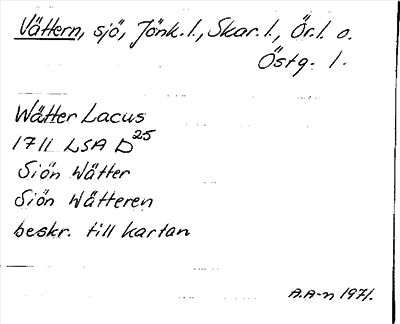 Vättern, sjö, Jönk. l., Skar. l., Ör. l. o.
Östg. l.
Wätter Lacus
1711 LSA D25
Siön Wätter
Siön Wätteren
beskr. till kartan
A.A-n 1971.